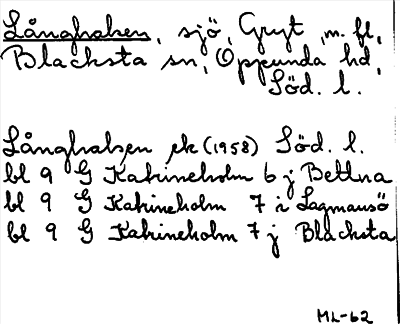 Långhalsen, sjö, Gryt, m. fl.
Blacksta sn, Oppunda hd,
Söd. l.
Långhalsen ek (1958) Söd. l.
bl 9 G Katrineholm 6 j Bettna
bl 9 G Katrineholm 7 i Lagmansö
bl 9 G Katrineholm 7 j Blacksta
ML-62